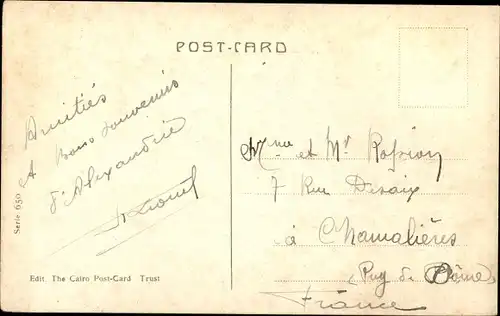 POST-CARD
Amitiés
et Bons souvenirs
d'Alexandrie
Serie 650
Edit. The Cairo Post-Card Trust
Mme et Mr
7 Rue Desaix
à Chamalières
(Puy de Dôme)
France